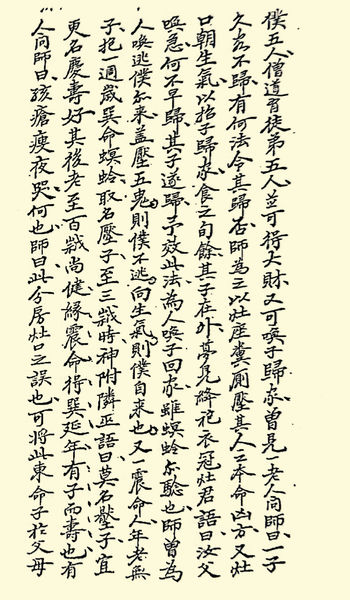 僕五人僧道習徒第五人並可得大財又可喚子歸家曾見一老人問師曰一子
久出不歸有何法令其歸否師為之以灶座糞厠壓其人之本命凶方又灶
口朝生氣以招子歸家食之旬餘其子在外夢見絳袍衣冠灶君語曰汝父
喚急何不早歸其子遂歸予效此法為人喚子回家雖螟蛉亦驗也師曾為
人喚逃僕亦来盖壓五鬼則僕不逃向生氣則僕自来也又一震命人年老無
子抱一週歲巽命螟蛉取名壓子至三歲時神附隣巫語曰莫名壓子宜
更名慶壽好其後老至百歲尚健緣震命得巽延年有子而壽也有
人問師曰孩瘡瘦夜哭何也師曰此分房灶口之誤也可將此東命子於父母